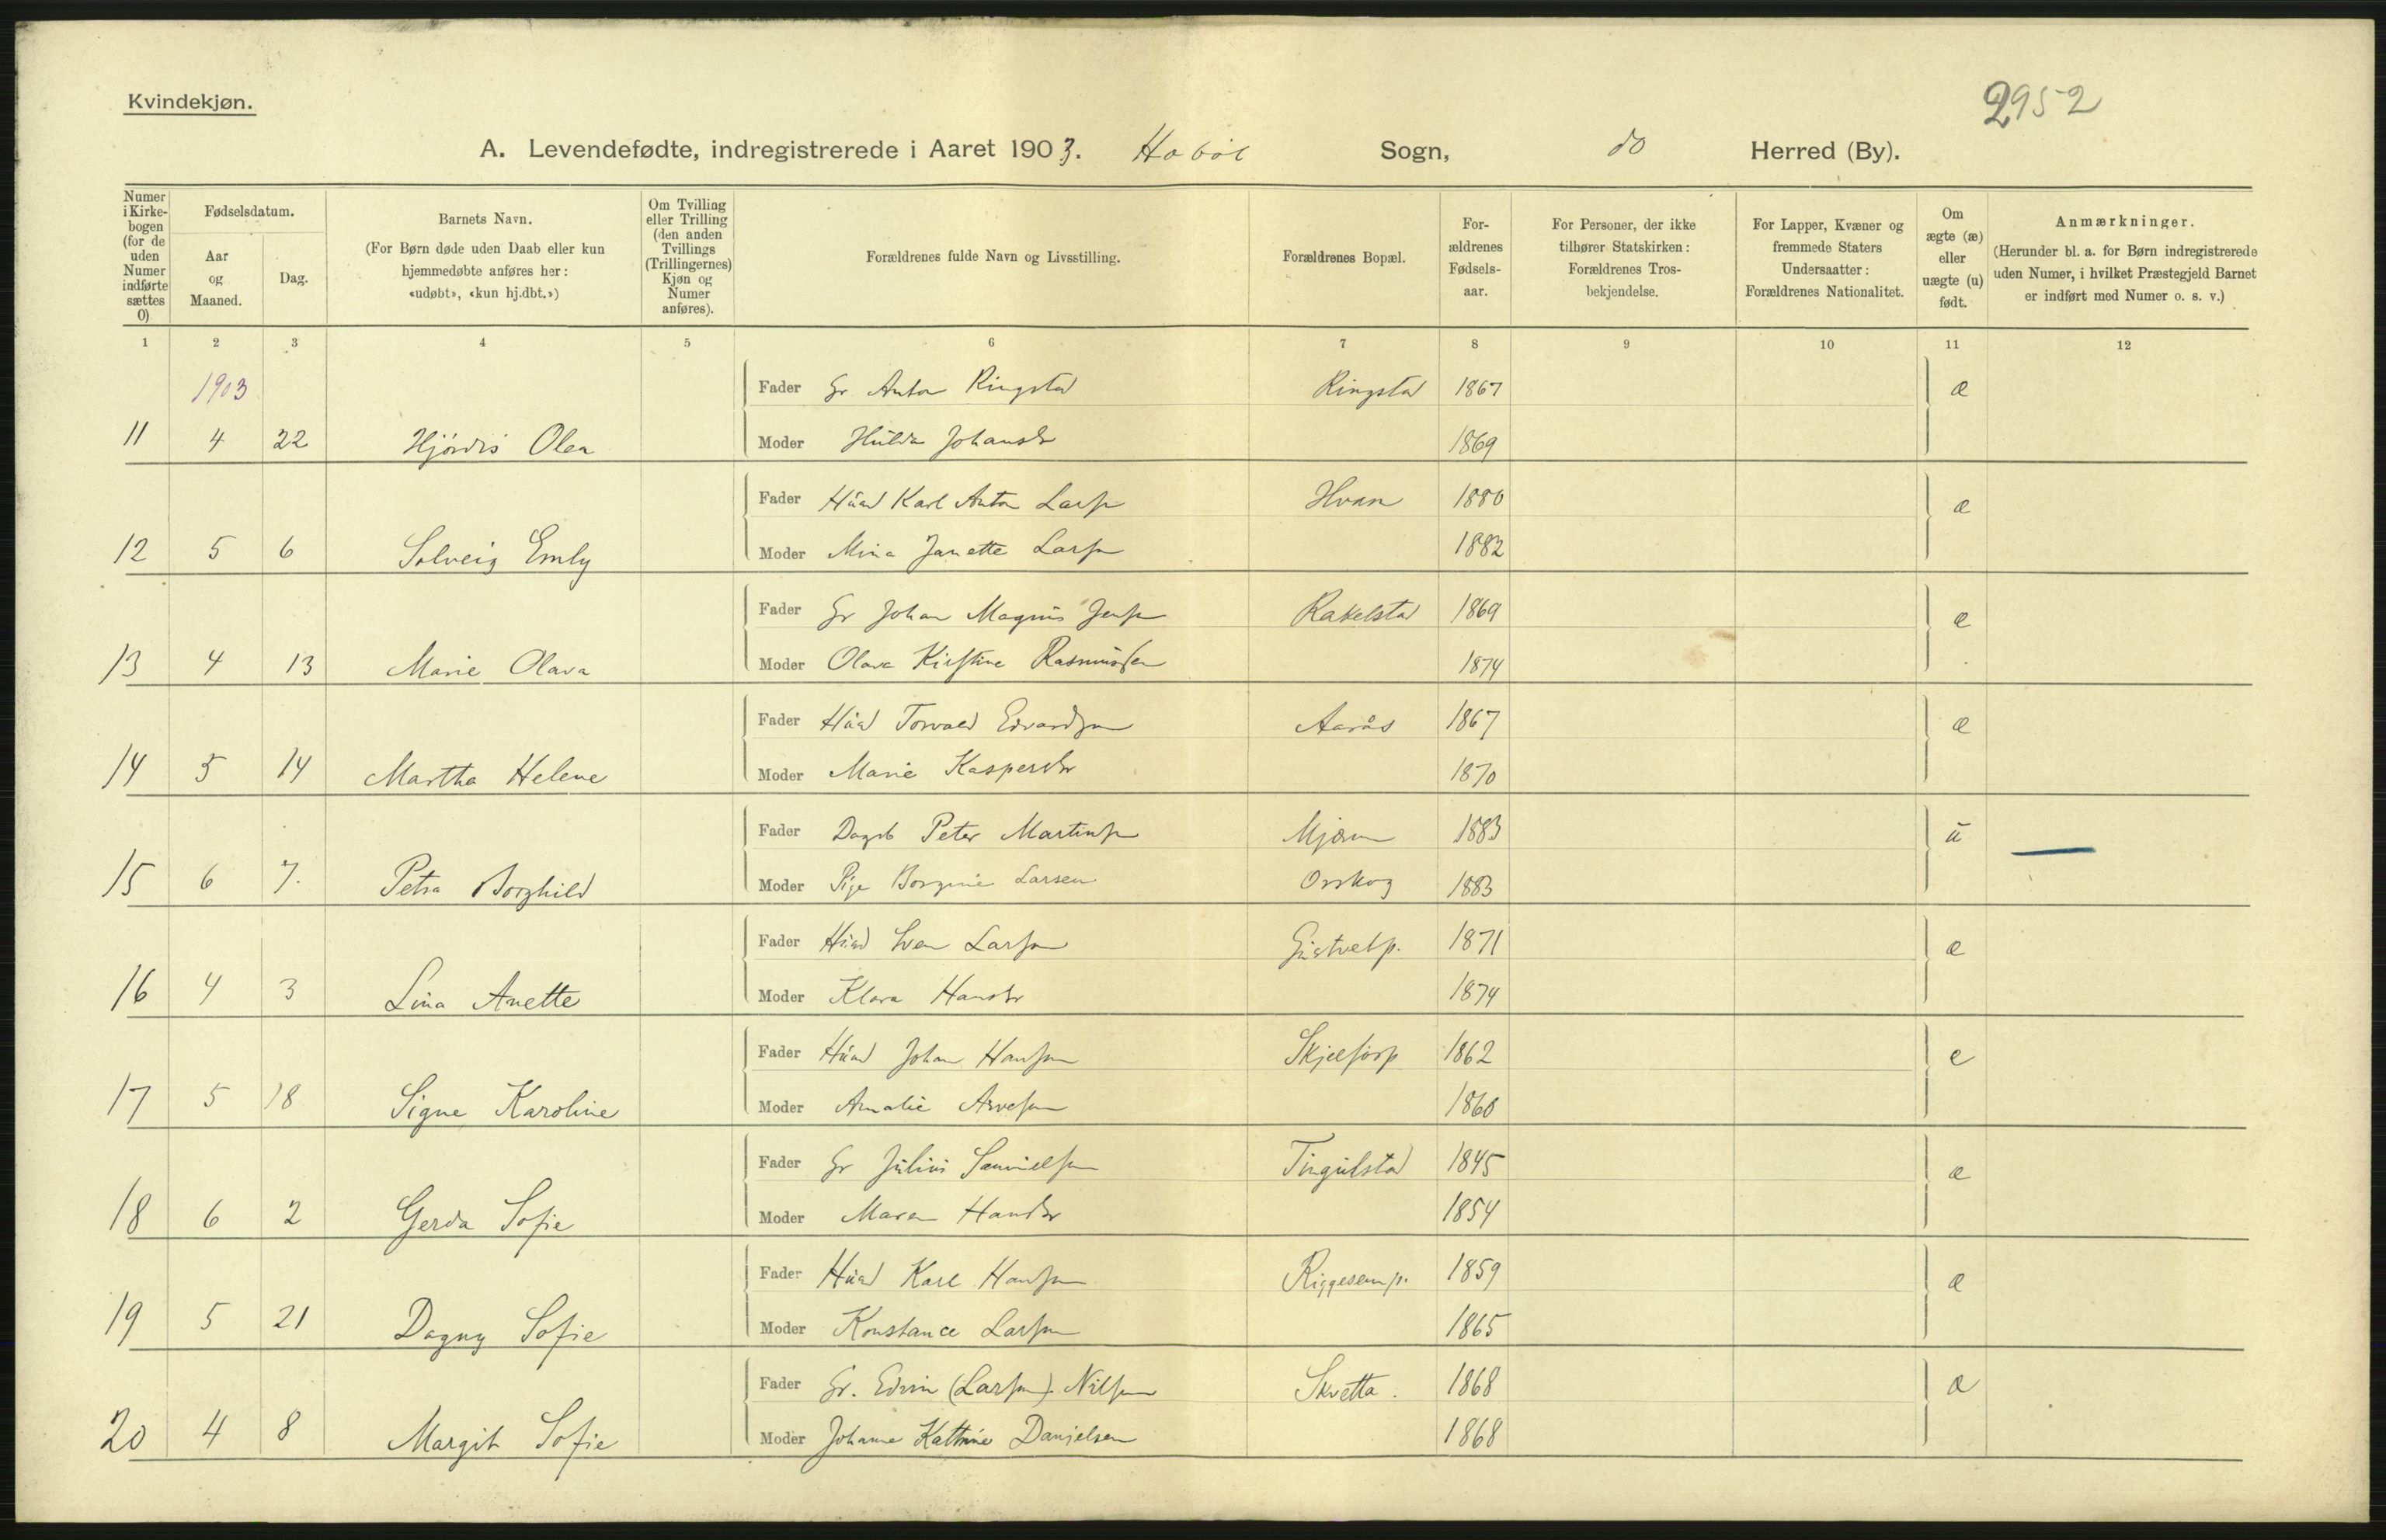 Kvindekjøn.
2952
A. Levendefødte, indregistrerede i Aaret 1903. Haböl Sogn, do Herred (By).
Numer i Kirke-bogen (for de uden Numer indførte sættes 0)
Fødselsdatum.
Aar og Maaned.
Dag.
Barnets Navn.
(For Børn døde uden Daab eller kun hjemmedøbte anføres her: «udøbt», «kun hj.dbt.»)
Om Tvilling eller Trilling (den anden Tvillings (Trillingernes) Kjøn og Numer anføres).
Forældrenes fulde Navn og Livsstilling.
Forældrenes Bopæl.
For-ældrenes Fødsels-aar.
For Personer, der ikke tilhører Statskirken: Forældrenes Tros-bekjendelse.
For Lapper, Kvæner og fremmede Staters Undersaatter: Forældrenes Nationalitet.
Om ægte (æ) eller uægte (u) født.
Anmærkninger.
(Herunder bl. a. for Børn indregistrerede uden Numer, i hvilket Præstegjeld Barnet er indført med Numer o. s. v.)
1 2 3 4 5 6 7 8 9 10 11 12
1903 Fader Gr Anton Ringstad Ringstad 1867 æ
11 4 22 Hjördis Olea Moder Hulda Johansdr 1869
Fader Husd Karl Anton Larsn Hvan 1880 æ
12 5 6 Solveig Emly Moder Mina Janette Larsn 1882
Fader Gr Johan Magnus Jensn Rakelstad 1869 æ
13 4 13 Marie Olava Moder Olava Kirstine Rasmussen 1874
Fader Husd Torvald Edvardsn Aarås 1867 æ
14 5 14 Martha Helene Moder Marie Kaspersdr 1870
Fader Dagsb Peter Martinsn Mjærum 1883 u
15 6 7. Petra Borghild Moder Pige Borgine Larsen Orskog 1883
Fader Husd Larsn 1871 æ
16 4 3 Lina Anette Moder Klara Hansdr 1874
Fader Husd Johan Hansn 1862 æ
17 5 18 Signe Karoline Moder Amalie Arvesn 1860
Fader Gr Julius Samuelsn Tingulstad 1845 æ
18 6 2 Gerda Sofie Moder Maren Hansdr 1854
Fader Husd Karl Hansn Riggesemp. 1859 æ
19 5 21 Dagny Sofie Moder Konstance Larsn 1865
Fader Gr. Edvin (Larsn) Nilsn Skvetta. 1868 æ
20 4 8 Margit Sofie Moder Johanne Kathrine Danjelsen 1868